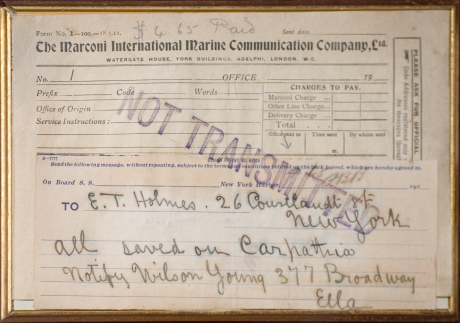 $4.65 Paid
Form No. 1—100.—18.5.12. Sent date
The Marconi International Marine Communication Company, Ltd.
WATERGATE HOUSE, YORK BUILDINGS, ADELPHI, LONDON, W.C.
No. 1 OFFICE 19
Prefix Code Words
CHARGES TO PAY.
Marconi Charge
Other Line Charge
Delivery Charge
Total
Office of Origin
Service Instructions:
Office sent to Time sent By whom sent
PLEASE ASK FOR OFFICIAL
NOT TRANSMITTED
Send the following message, without repeating, subject to the terms printed on the back hereof, which are hereby agreed to.
On Board S. S. New York
TO E. T. Holmes. 26 Courtlandt St
New York
all saved on Carpathia
Notify Wilson Young 377 Broadway
Ella